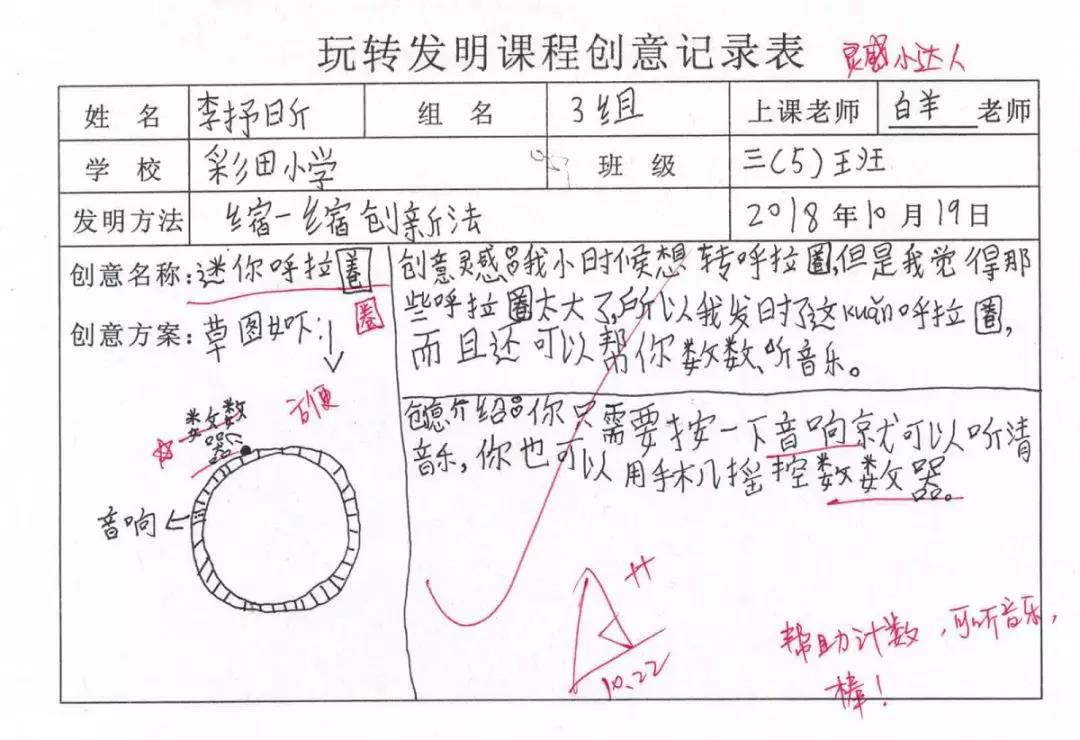 玩转发明课程创意记录表 灵感小达人
姓 名 李抒昕 组 名 3组 上课老师 白羊 老师
学 校 彩田小学 班 级 三(5)班
发明方法 缩一缩创新法 2018年10月19日
创意名称:迷你呼拉圈
圈
创意方案:草图如下:
方便
数数器
音响
创意灵感:我小时候想转呼拉圈,但是我觉得那
些呼拉圈太大了,所以我发明了这kuǎn呼拉圈,
而且还可以帮你数数、听音乐。
创意介绍:你只需要按一下音响就可以听清
音乐,你也可以用手机摇控数数器。
A++
10.22
帮助计数,可听音乐,
棒!